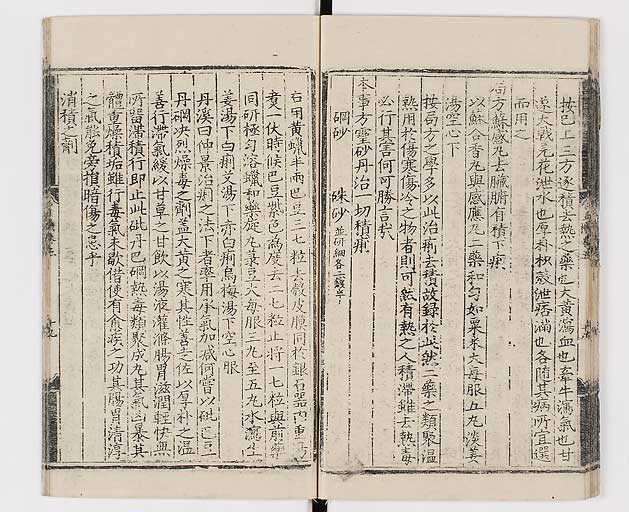 按已上三方逐積去熱之藥也大黃瀉血也牽牛瀉氣也甘
遂大戟芫花泄水也厚朴枳殼泄痞滿也各隨其病所宜選
而用之
局方蘇感丸去臟腑有積下痢
以蘇合香丸與感應丸二藥和勻如粟米大每服五丸淡姜
湯空心下
按局方之學多以此治痢去積故錄於此然二藥之類聚溫
熱用於傷寒傷冷之物者則可絃有熱之人積滯雖去熱毒
必行其害何可勝言哉
本事方靈砂丹治一切積痢
硇砂 硃砂 並研細各二錢半
右用黃蠟半兩巴豆三七粒去殼皮膜同於銀石器內重湯
煑一伏時候巴豆紫色為度去二七粒止將一七粒與前藥
同研極勻溶蠟和藥旋丸菉豆大每服三九至五九水瀉生
姜湯下白痢艾湯下赤白痢烏梅湯下空心服
丹溪曰仲景治痢之法下者率用承氣加減何嘗以砒巴豆
丹碙决烈燥毒之劑蓋大黃之寒其性善走佐以厚朴之溫
善行滯氣緩以甘草之甘飲以湯液灌滌腸胃滋潤輕快無
所留滯積行即止此砒丹巴碙熱毒類聚成丸其氣凶暴其
體重燥積垢雖行毒氣未歇借使有愈疾之功其腸胃清淳
之氣能免旁損暗傷之患乎
消積之劑